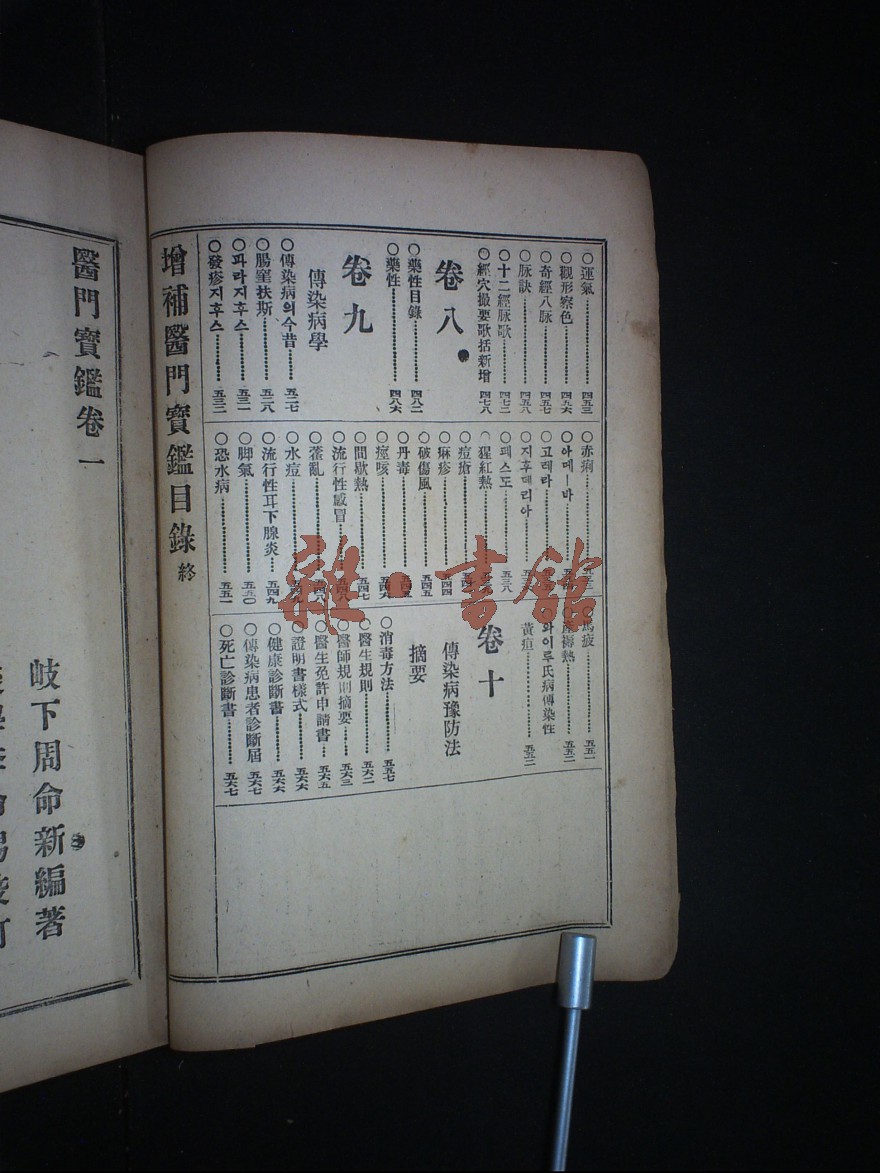 ○運氣 四五三
○觀形察色 四五六
○奇經八脉 四五七
○脉訣 四五八
○十二經脉歌 四七三
○經穴撮要歌括新增 四七八
卷八
○藥性目錄 四八二
○藥性 四八六
卷九
傳染病學
○傳染病의今昔 五二七
○腸窒扶斯 五二八
○파라지후스 五三一
○發疹지후스 五三二
○赤痢
○아메ー바
○고레라
○지후데리아
○페스도 五三八
○猩紅熱
○痘瘡
○麻疹 五四四
○破傷風 五四五
○丹毒
○痙咳 五四六
○間歇熱 五四七
○流行性感冒
○藿亂
○水痘
○流行性耳下腺炎 五四九
○脚氣 五五〇
○恐水病 五五一
五五一
五五二
○와이루氏病傳染性
黃疸 五五二
卷十
傳染病豫防法
摘要
○消毒方法 五五七
○醫生規則 五六二
○醫師規則摘要 五六三
○醫生免許申請書 五六五
○證明書樣式 五六六
○健康診斷書 五六六
○傳染病患者診斷屆 五六七
○死亡診斷書 五六七
增補醫門寶鑑目錄 終
醫門寶鑑卷一
岐下周命新編著
雜·書館